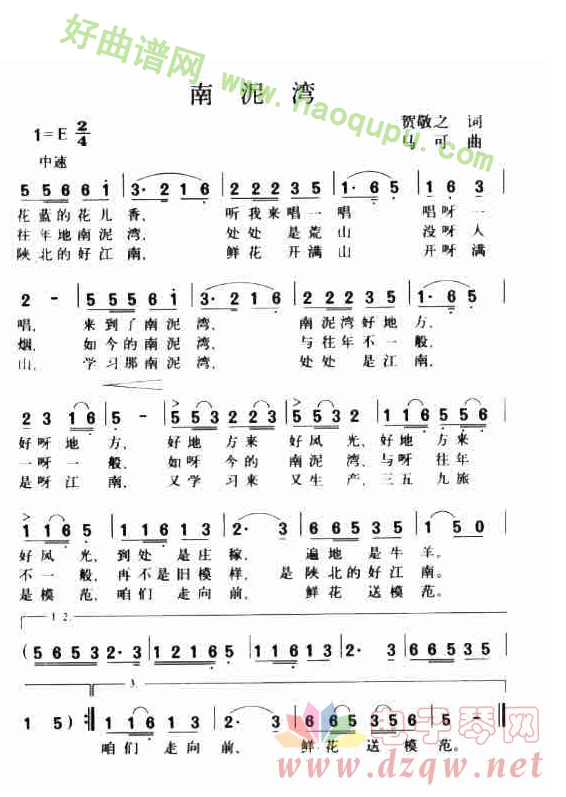 好曲谱网
www.haoqupu.com
南 泥 湾
1=E 2/4
贺敬之 词
马 可 曲
中速
5 5 6 6 i | 3· 2 1 6 | 2 2 2 3 5 | 1· 6 5 | 1 6 3
花 蓝 的 花 儿 香, 听 我 来 唱 一 唱 唱 呀 一
往 年 地 南 泥 湾, 处 处 是 荒 山 没 呀 人
陕 北 的 好 江 南, 鲜 花 开 满 山 开 呀 满
2 - | 5 5 5 6 i | 3· 2 1 6 | 2 2 2 3 5 | 1· 6 5
唱, 来 到 了 南 泥 湾, 南 泥 湾 好 地 方,
烟, 如 今 的 南 泥 湾, 与 往 年 不 一 般,
山, 学 习 那 南 泥 湾, 处 处 是 江 南,
2 3 1 6 | 5 - | 5 5 3 2 2 3 | 5 5 3 2 | 1 1 6 5 5 6
好 呀 地 方, 好 地 方 来 好 风 光, 好 地 方 来
一 呀 一 般, 如 呀 今 的 南 泥 湾, 与 呀 往 年
是 呀 江 南, 又 学 习 来 又 生 产, 三 五 九 旅
1 1 6 5 | 1 1 6 1 3 | 2· 3 | 6 6 5 3 5 | 1 5 0
好 风 光, 到 处 是 庄 稼, 遍 地 是 牛 羊。
不 一 般, 再 不 是 旧 模 样, 是 陕 北 的 好 江 南。
是 模 范, 咱 们 走 向 前, 鲜 花 送 模 范。
1. 2.
( 5 6 5 3 5 | 2· 3 | 1 2 1 6 5 | 1 1 6 1 3 | 2· 3 | 6 6 5 3 5
3.
1 5 ) :‖ 1 1 6 1 3 | 2· 3 | 6 6 5 3 5 6 | 5 - ‖
咱 们 走 向 前, 鲜 花 送 模 范。
电子琴网
www.dzqw.net